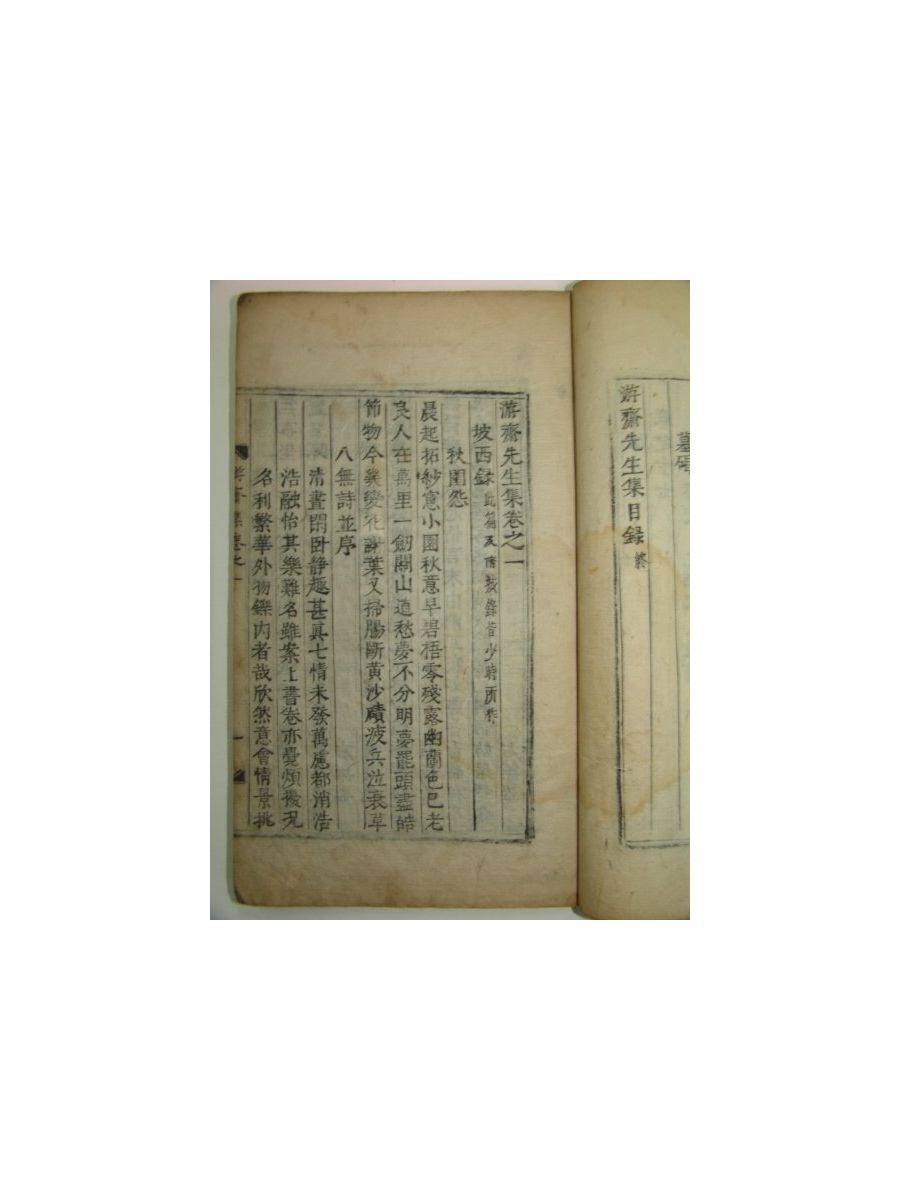 墓碣
游齋先生集目錄 終
游齋先生集卷之一
坡西錄 此篇及 錄皆少時所作
秋閨怨
晨起拓紗窓小園秋意早碧梧零殘露幽蘭色已老
良人在萬里一劒關山道愁夢不分明夢罷頭盡皓
節物今幾變花謝葉又掃腸斷黃沙磧疲兵泣衰草
八無詩並序
淸晝閑卧静趣甚真七情未發萬慮都消浩
浩融怡其樂難名雖案上書卷亦覺煩擾况
名利繁華外物鑠內者哉欣然意會情景挑
游齋集卷之一
一